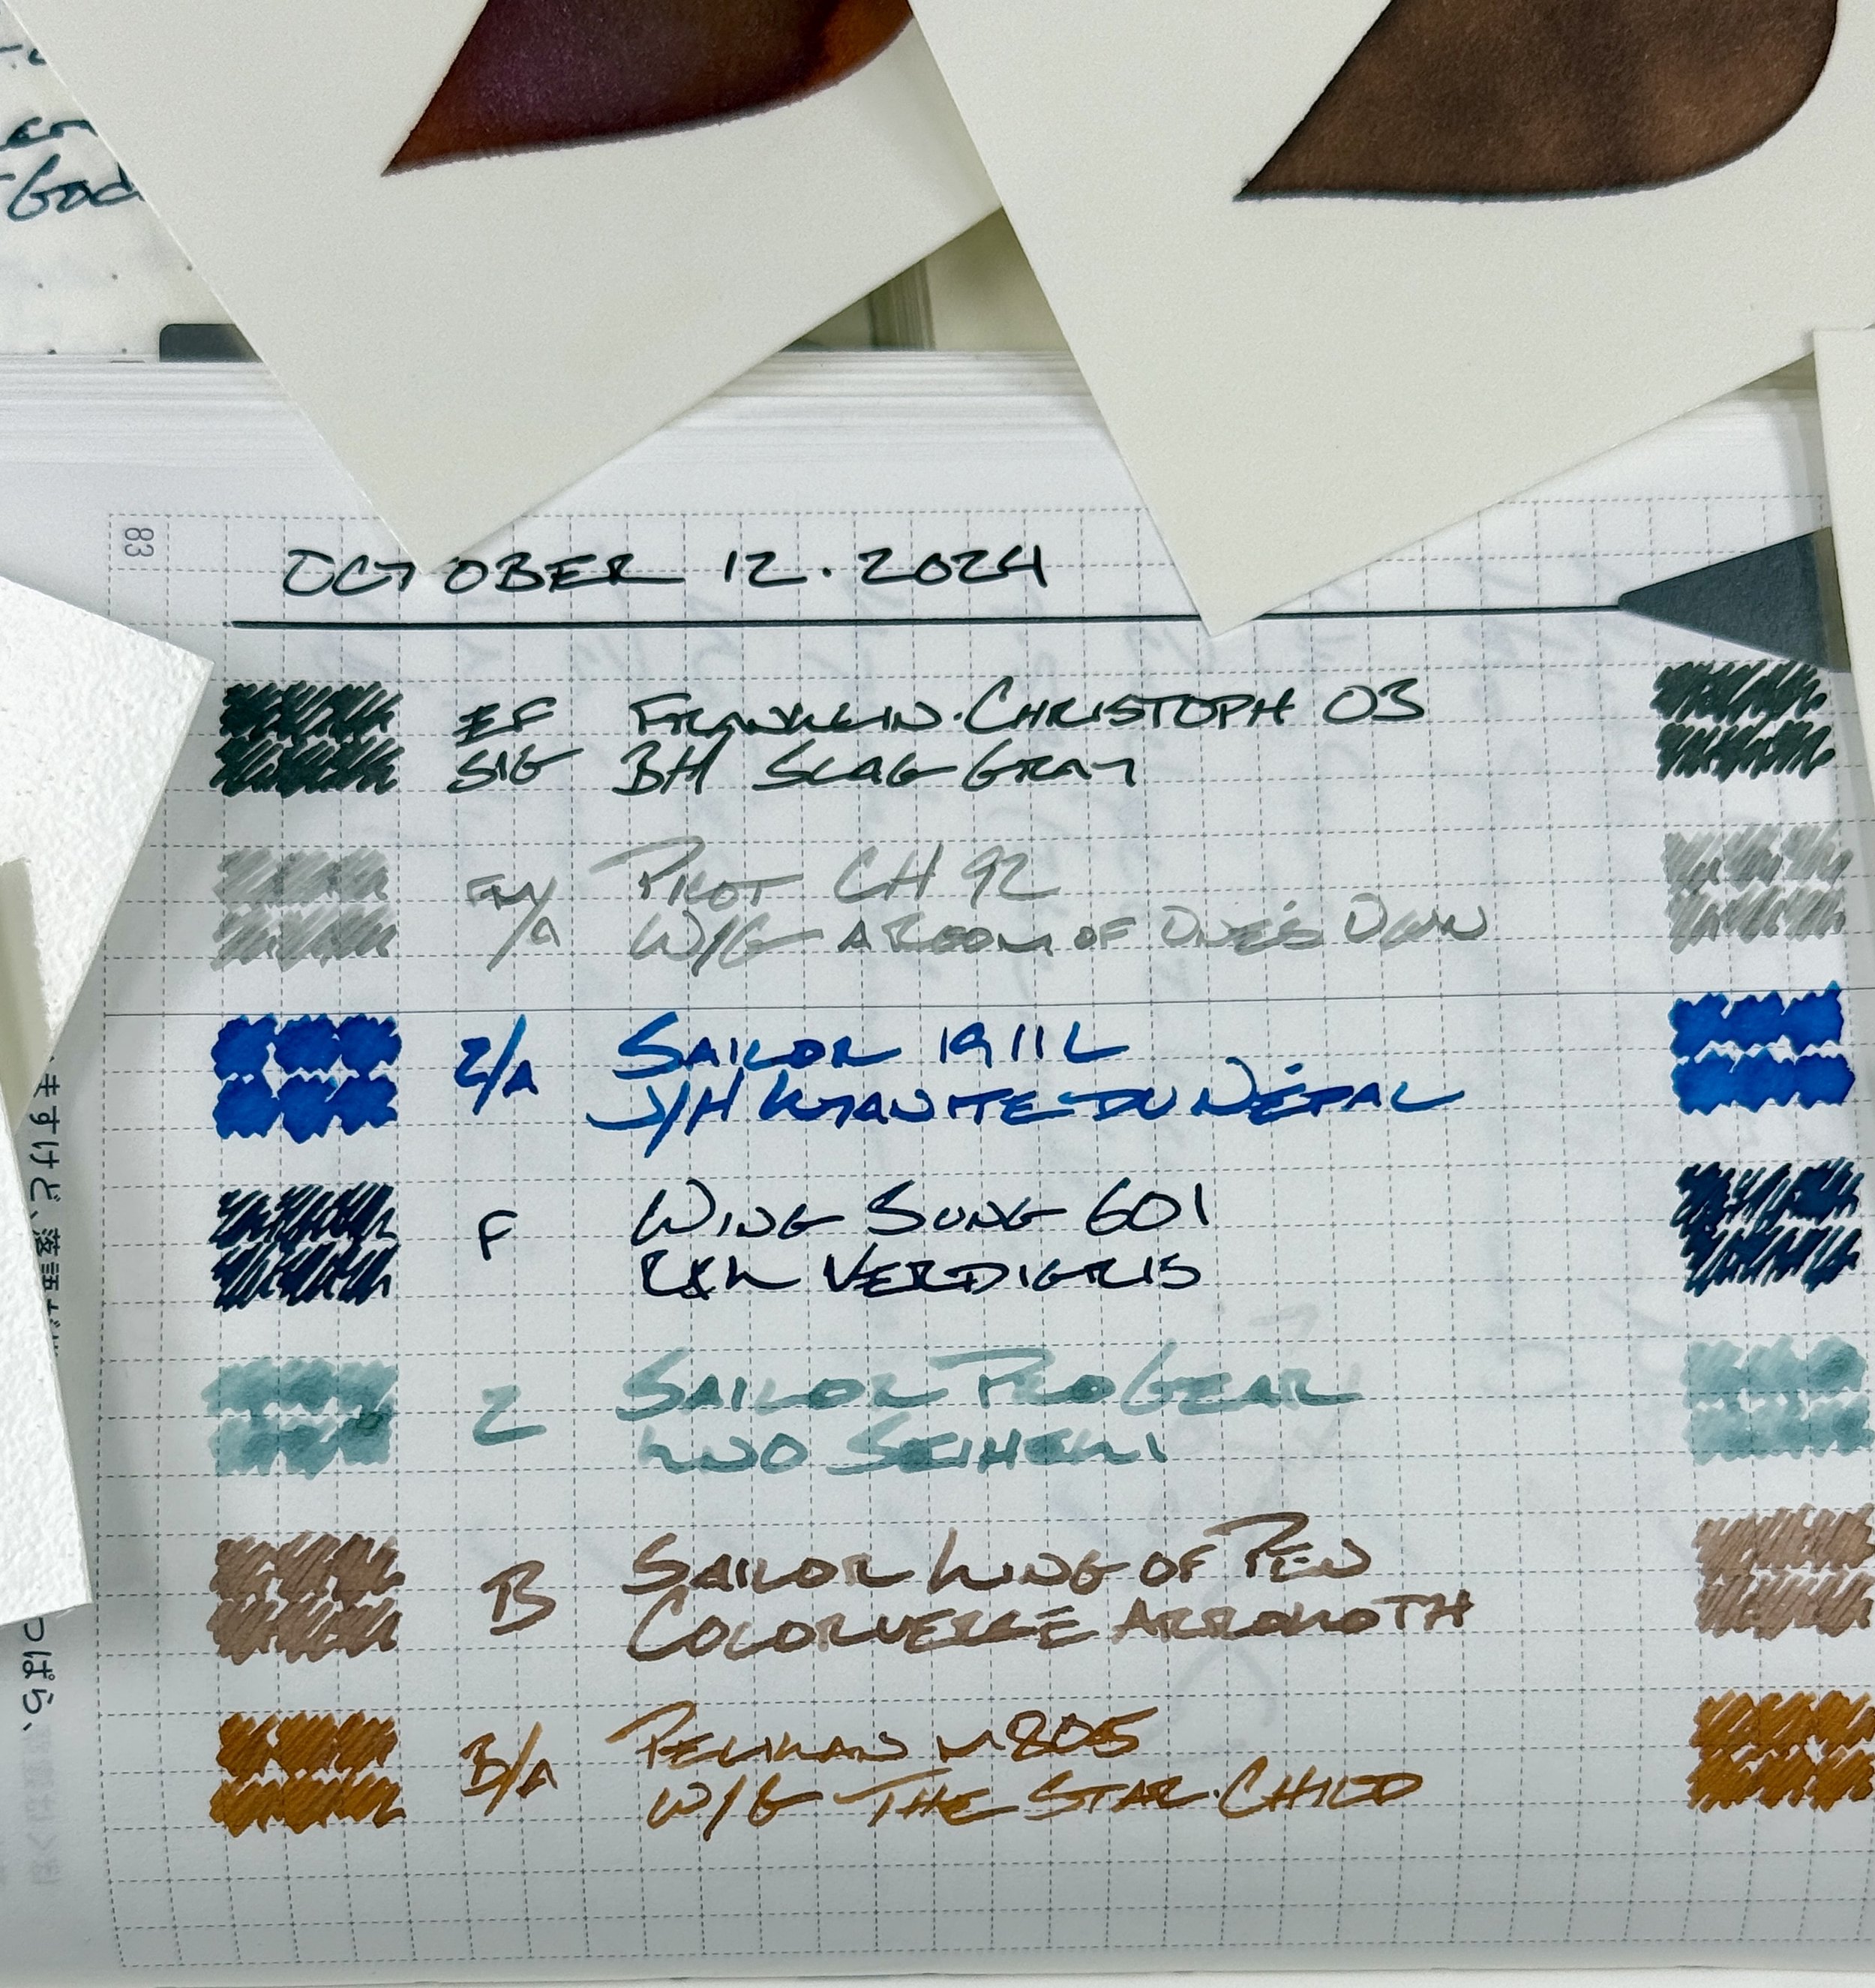 God
83
OCTOBER 12.2024
EF FRANKLIN-CHRISTOPH 03
SIG BH SLAG GRAY
FM/A PILOT CH 92
W/G A ROOM OF ONE'S OWN
Z/A SAILOR 1911L
J/H KYANITE DU NÉPAL
F WING SUNG 601
R&K VERDIGRIS
Z SAILOR PRO GEAR
KWO SEIHEKI
B SAILOR KING OF PEN
COLORVERSE ARROKOTH
B/A PELIKAN M805
W/G THE STAR-CHILD
ますけど、落語
っぱら、